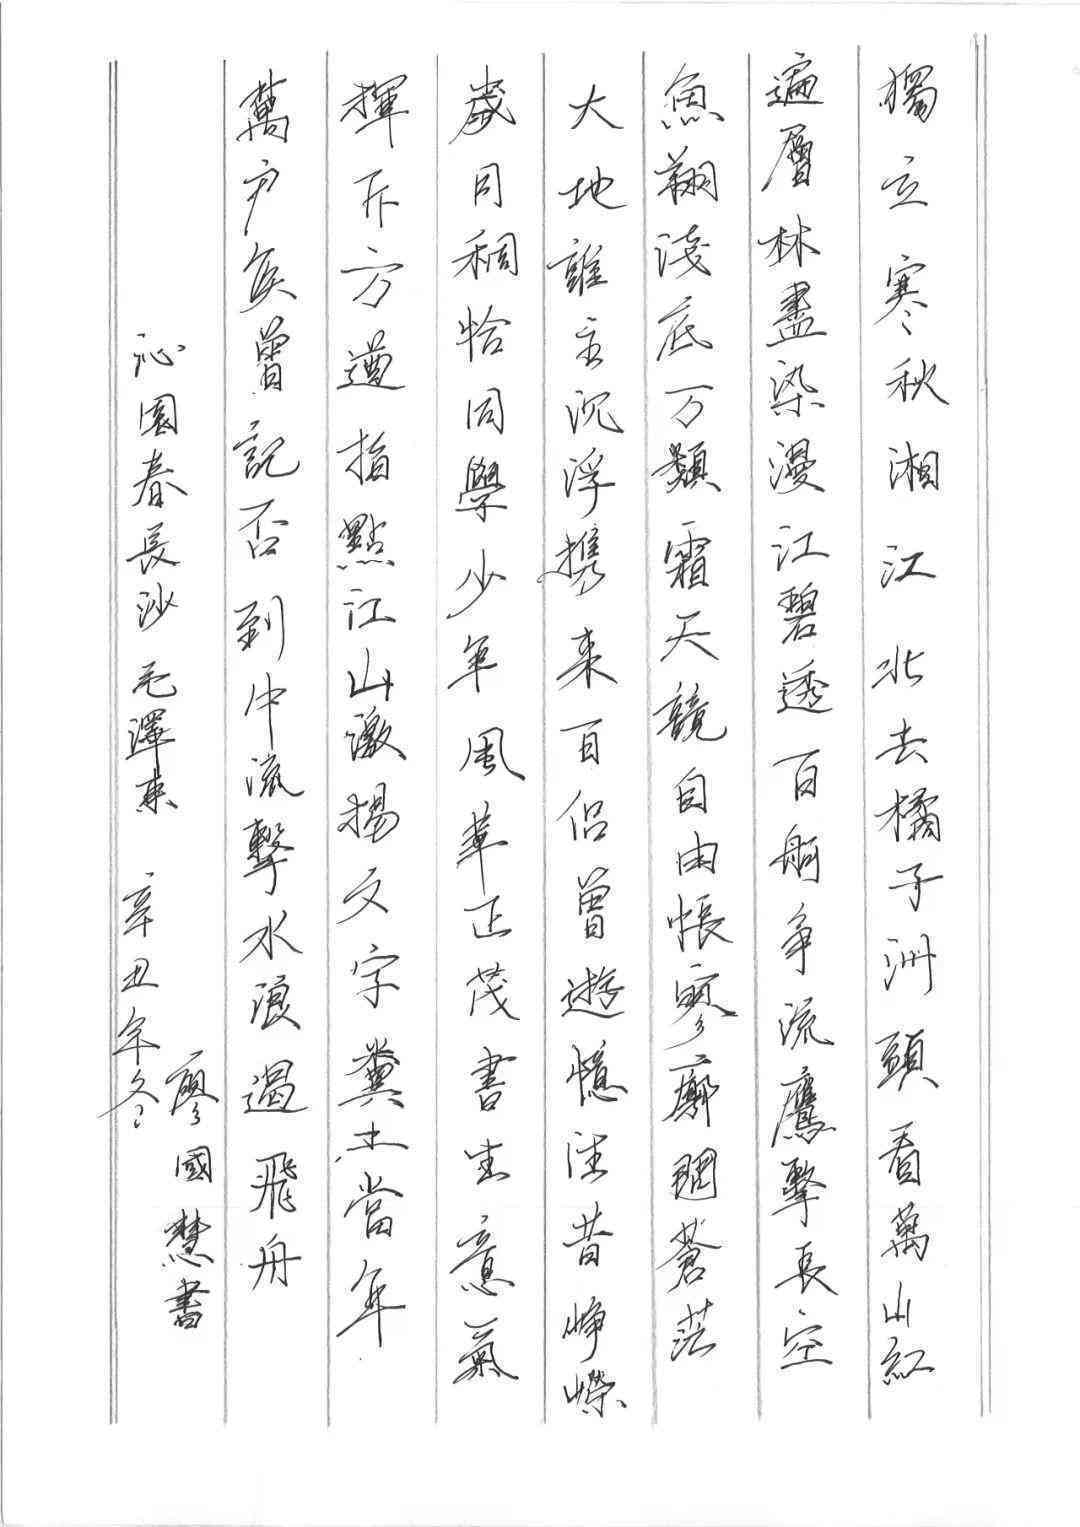 獨立寒秋湘江北去橘子洲頭看萬山紅
遍層林盡染漫江碧透百舸争流鷹擊長空
魚翔淺底万類霜天競自由悵寥廓問蒼茫
大地誰主沉浮携来百侣曾遊憶往昔崢嶸
歲月稠恰同學少年風華正茂書生意氣
揮斥方遒指點江山激揚文字糞土當年
萬户矦曾記否到中流擊水浪遏飛舟
沁園春長沙毛澤東 辛丑年冬
廖國慧書